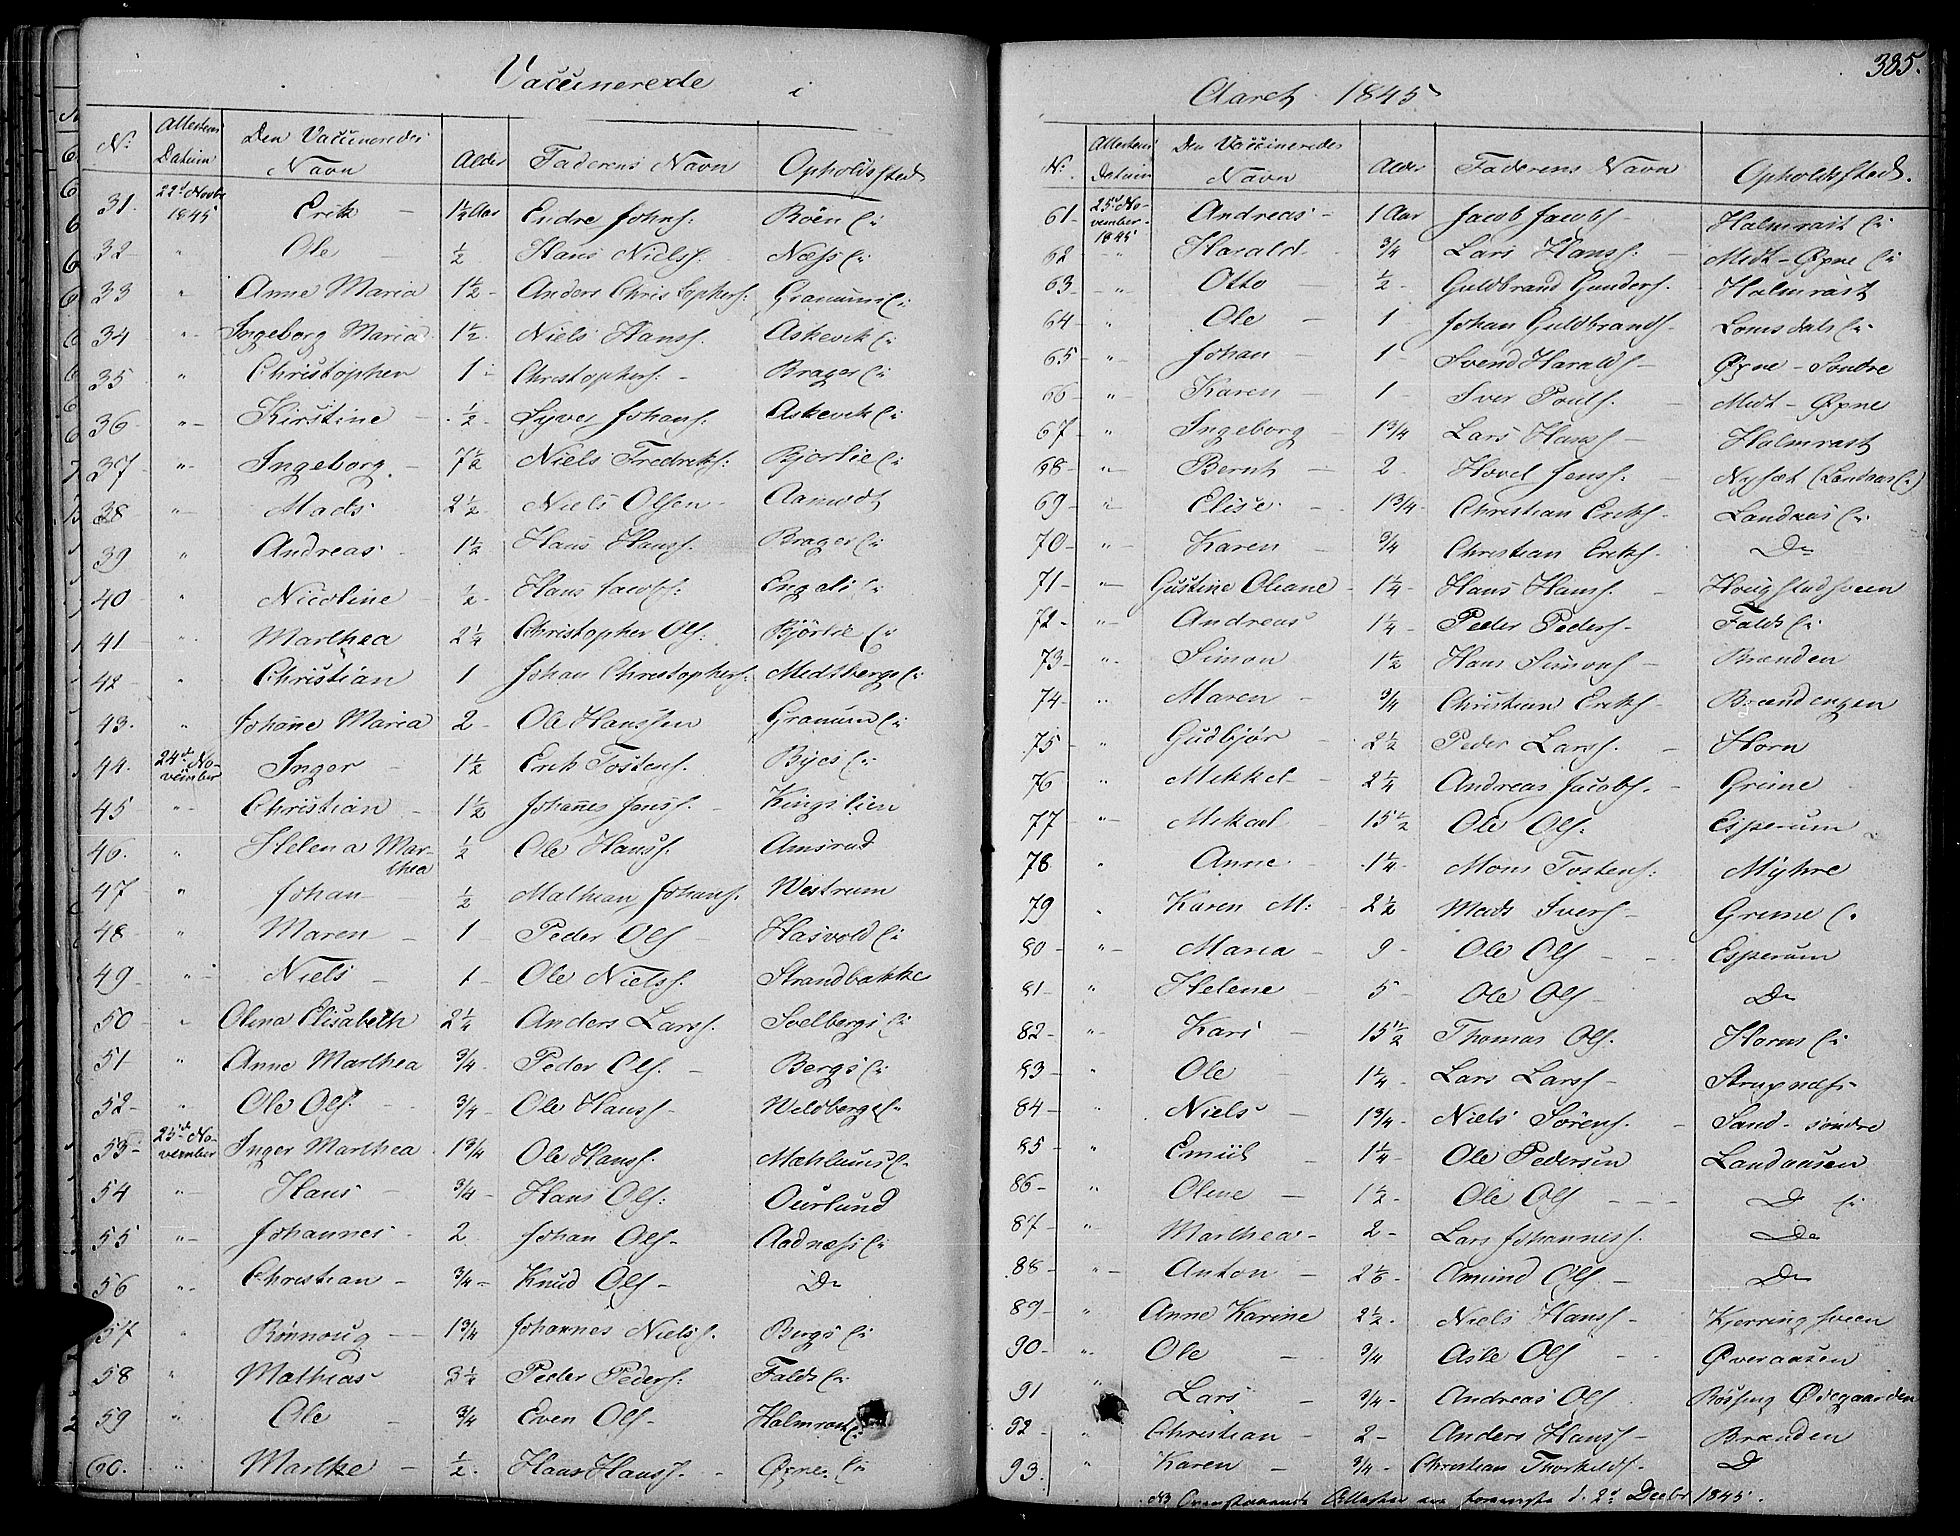 Vaccinerede i
N: Attestens Datum Den Vaccineredes Navn Alder Faderens Navn Opholdssted
31. 22d Novbr 1845 Erik – 1½ Aar Endre Johns: Röen E:
32 – " Ole – ½ Hans Niels: Næss E:
33 " Anne Maria 1½ – Anders Christophers: Granum E:
34 " Ingeborg Maria 1½ Niels Hans: Askevik E:
35 " Christopher 1 – Christophers: – Brager E:
36 " Kirstine – ½ – Syver Johans: Askevik E:
37 " Ingeborg – 7½ Niels Fredriks: Bjorlie E:
38 " Mads 2½ Niels Olsen Aamodt
39 " Andreas 1½ Hans Hans: Brager E:
40 " Nicoline ½ – Hans Jacobs: Engeli E:
41 " Marthea 2¼ Christopher Ols: Björlie E:
42 " Christian 1 Johan Christophers: Midtbergs E:
43. " Johane Maria 2 – Ole Hanssen Granum E:
44. 24d November Inger – 1½ Erik Tostens: Byes E:
45 " Christian – 1½ Johanes Jens: Kingslien
46. " Helena Marthea ½ Ole Hans: Amsrud
47 " Johan ½ Mathias Johans: Westrum
48 " Maren – 1 – Peder Ols – Hasvold E:
49 " Niels – 1 – Ole Niels: Strandbakke
50 " Olena Elisabeth 2¼ Anders Lars: Solbergs E:
51 " Anne Marthea ¾ – Peder Ols. – Bergs E:
52 – " Ole Ols: ¾ – Ole Hans: Weldberg E:
53 – 25d November Inger Marthea 1¾ Ole Hans: Mæhlums E:
54 " Hans – ¾ – Hans Ols: Ourlund
55 " Johannes 2 Johan Ols – Aadnæs E:
56 " Christian – ¾ – Knud Ols – Do
57 " Rönnoug – 1¾ Johannes Niels: Bergs E:
58 " Mathias 3½ Peder Peders: Falds E:
59 " Ole – ¾ Even Ols – Halmrast E:
60. " Marthe – ½ – Hans Hans: – Öxne E:
385.
Aaret 1845
N: Attestens Datum Den Vaccineredes Navn Alder Faderens Navn Opholdssted.
61 – 25d November 1845 Andreas – 1 Aar Jacob Jacobs – Halmrast E:
62 – " Harald – ¾ Lars Hans: – Midt-Öxne E:
63 – " Otto – ½ – Guldbrand Gunders. – Halmrast
64 " Ole – 1 – Johan Guldbrands. – Lomsdals E:
65. " Johan – 1 – Svend Haralds – Öxne – Sondre
66 " Karen – 1 – Iver Pouls. – Midt – Öxne
67 – " Ingeborg – 1¾ Lars Hans: – Halmrast
68 – " Bernt – 2 – Hovel Jens: – Nysæt (Landaas E:)
69 " Elise – 1¾ – Christian Eriks – Landaas E:
70 – " Karen – ¾ Christian Eriks – Do
71 – " Gustine Oleane – 1¼ – Hans Hans: – Hougstadsveen
72 – " Andreas 1¼ – Peder Peders – Falds E:
73 – " Simon 1½ Hans Simons – Brænden
74 " Maren – ¾ Christian Eriks – Brændengen
75 " Gudbjör – 2½ – Peder Lars: – Horn
76 " Mikkel – 2¼ Andreas Jacobs. – Grime
77 " Mikael – 15½ Ole Ols: Esperum
78 " Anne – 1¼ – Mons Tostens: Myhre
79 " Karen M: – 2½ Mads Ivers – Grime E:
80 – " Maria – 9 – Ole Ols – Esperum
81 – " Helene – 5 – Ole Ols – Do
82 – " Kari – 15½ Thomas Ols. Horns E:
83 – " Ole – 1¼ – Lars Lars: – Strupnæs
84 – " Niels – 1¾ – Niels Sörens. – Sand – söndre
85 – " Emiil – 1¼ – Ole Pedersen Landaasen
86 – " Olene – 1½ – Ole Ols – Do E:
87 – " Marthea – 2 – Lars Johanness. Do
88 – " Anton – 2⅙ – Amund Ols – Do
89 – " Anne Karine 2½ – Niels Hans: – Kjerringsveen
90 – " Ole – ¾ Asle Ols – Överaasen
91 " Lars – ¾ – Andreas Ols. Rössing Ödegaarden
92 – " Christian – 2 – Anders Hans: – Brænden
93 – " Karen – ¾ – Christian Thorkilds – D
NB Ovenstaaende Attester ere d. 2d Decbr 1845.